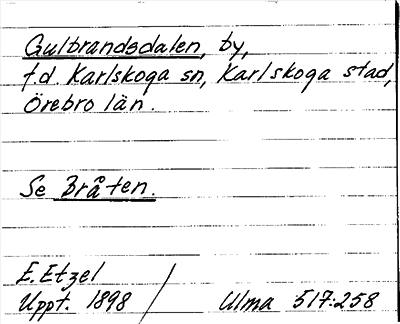 Gulbrandsdalen, by,
f.d. Karlskoga sn, Karlskoga stad,
Örebro län.
Se Bråten.
E. Etzel
Uppt. 1898 / Ulma 517:258